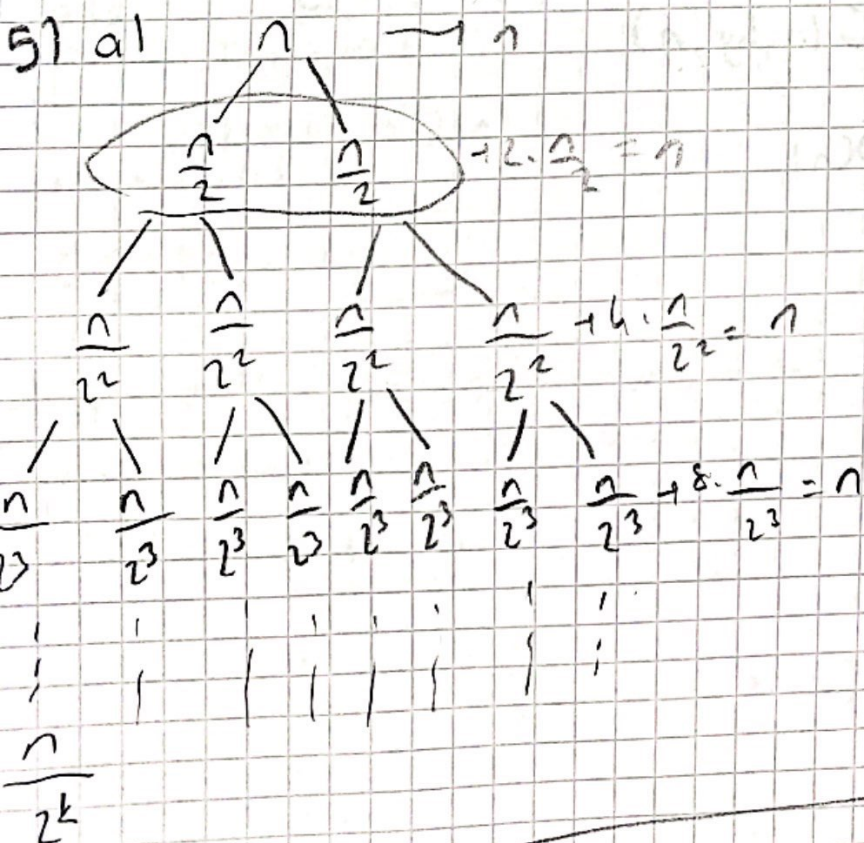 5) a) n → n
n/2 n/2 +2·n/2 = n
n/2² n/2² n/2² n/2² +4·n/2² = n
n/2³ n/2³ n/2³ n/2³ n/2³ n/2³ n/2³ n/2³ +8·n/2³ = n
n/2ᵏ